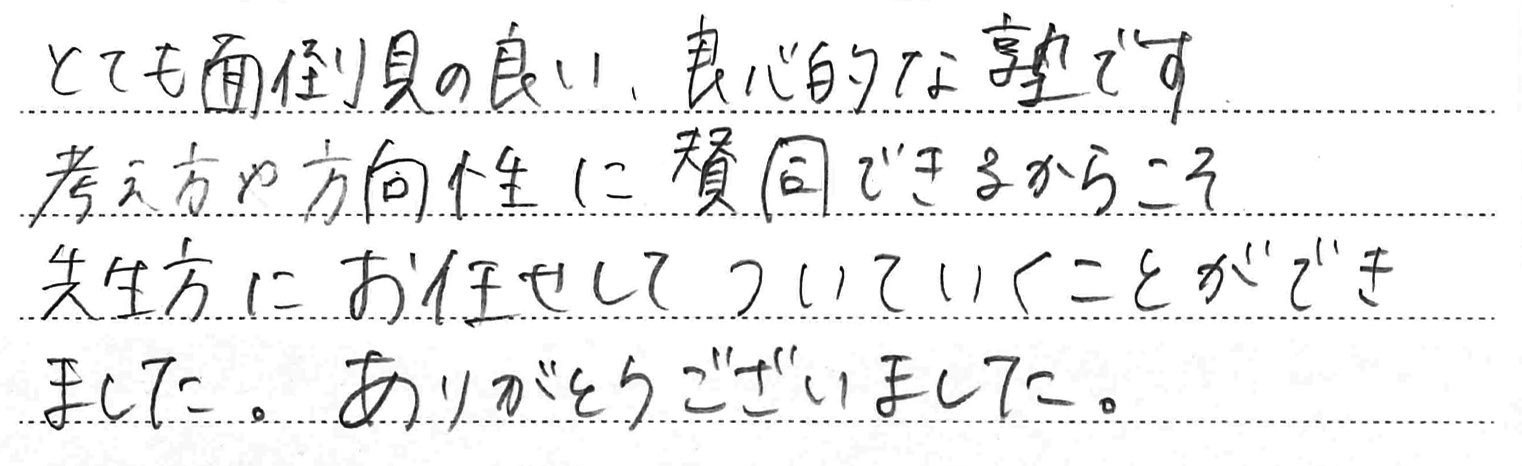 とても面倒見の良い、良心的な塾です
考え方や方向性に賛同できるからこそ
先生方にお任せしてついていくことができ
ました。ありがとうございました。